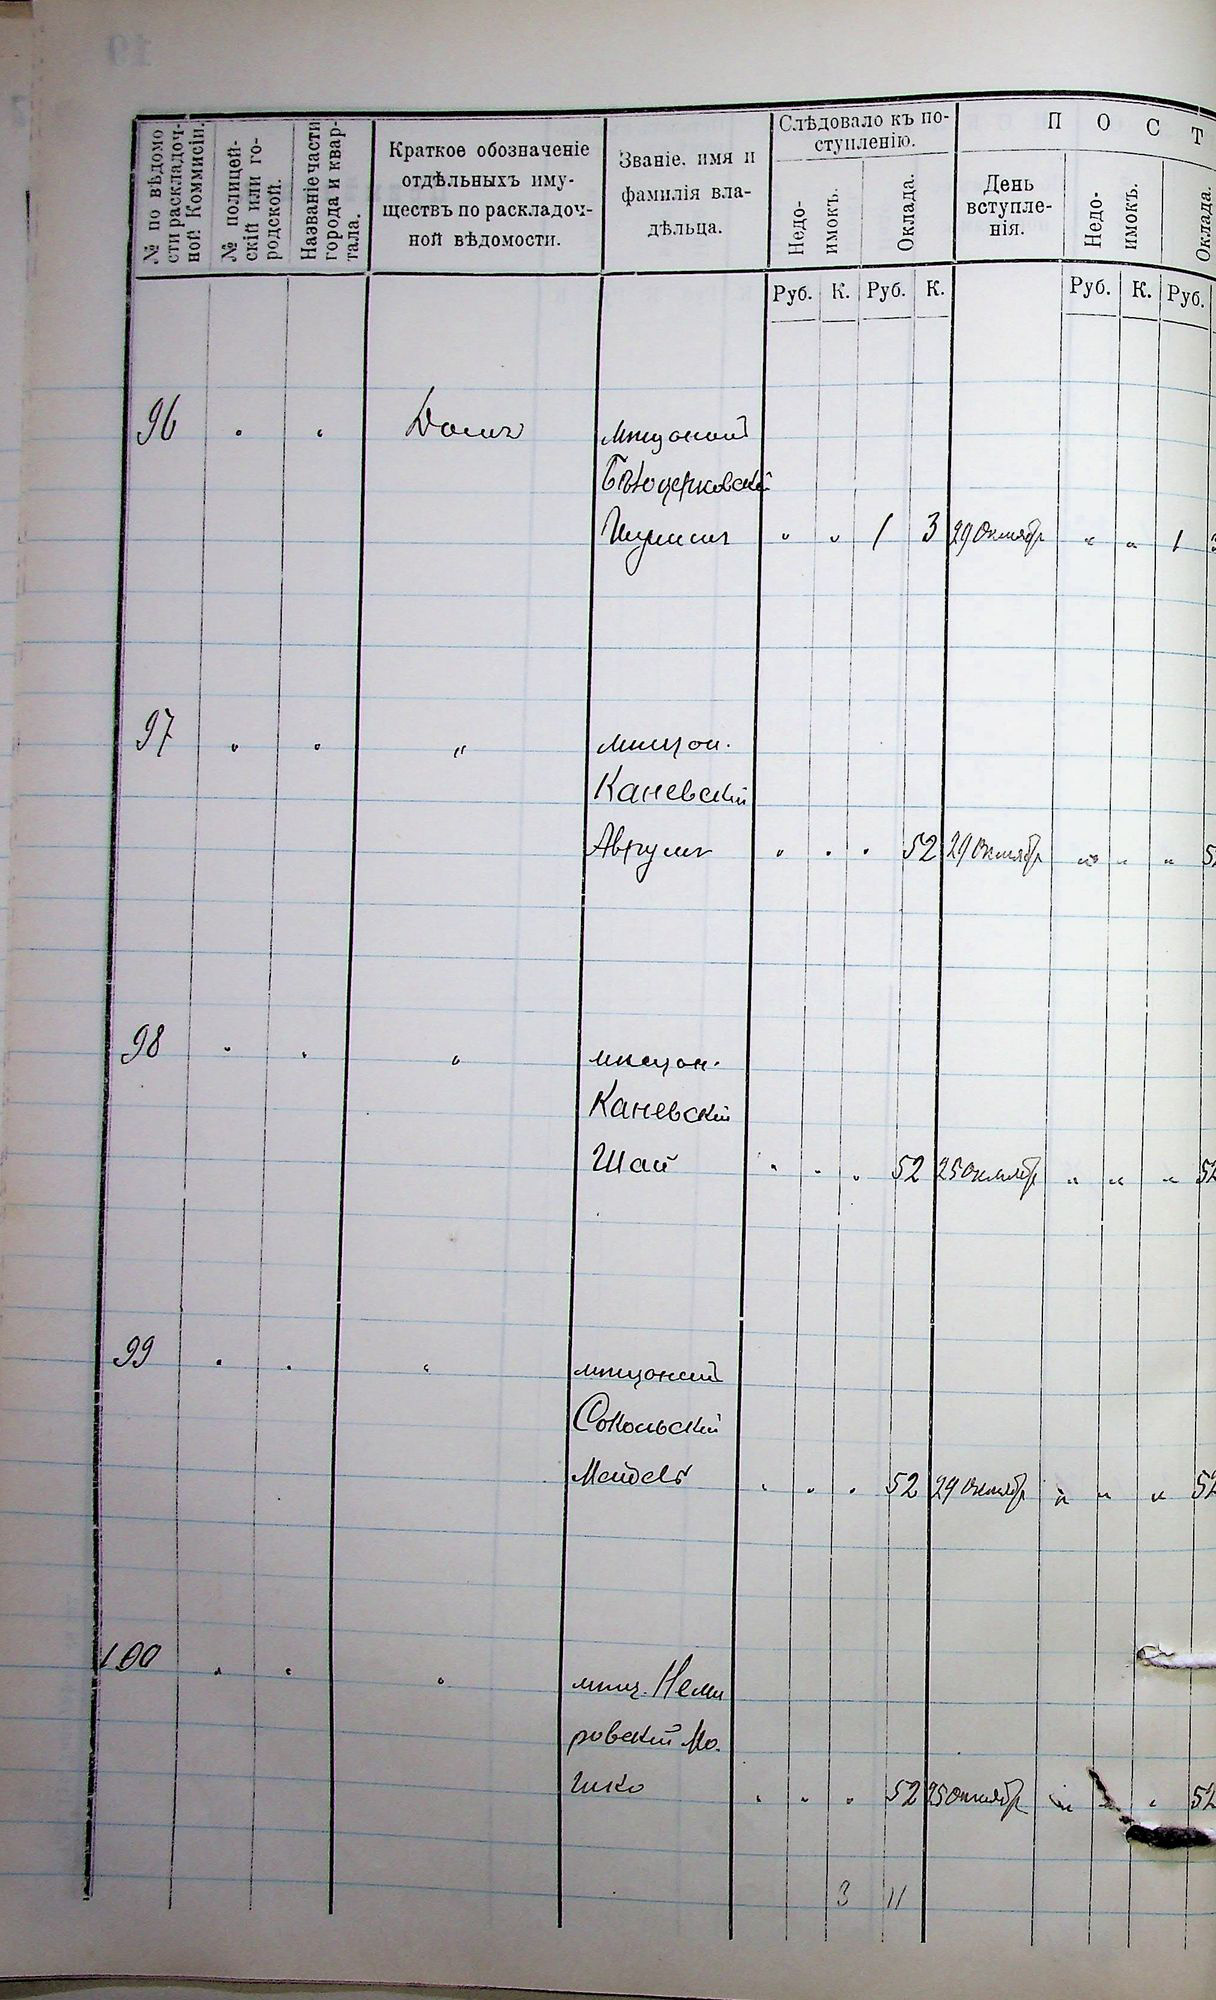 № по вѣдомо
сти раскладоч-
ной Коммисіи.
№ полицей-
скій или го-
родской.
Названіе части
города и квар-
тала.
Краткое обозначеніе
отдѣльныхъ иму-
ществъ по раскладоч-
ной вѣдомости.
Званіе, имя и
фамилія вла-
дѣльца.
Слѣдовало къ по-
ступленію.
Недо-
имокъ.
Оклада.
День
вступле-
нія.
П О С Т
Недо-
имокъ.
Оклада.
Руб. К. Руб. К. Руб. К. Руб.
96 " " Домъ
Бѣлоцерковскій
" " 1 3 29 Октябр " " 1
97 " " " мищан.
Каневскій
Аврумъ " " " 52 29 Октябр " " "
98 " " " мищан.
Каневскій
Шай " " " 52 25 октябр " " " 52
99 " " "
Сокольскій
" " " 52 29 Октябр " " " 52
100 " " " мищ. Неми
ровскій Мо
шко " " " 52 25 октябр " " " 52
3 11